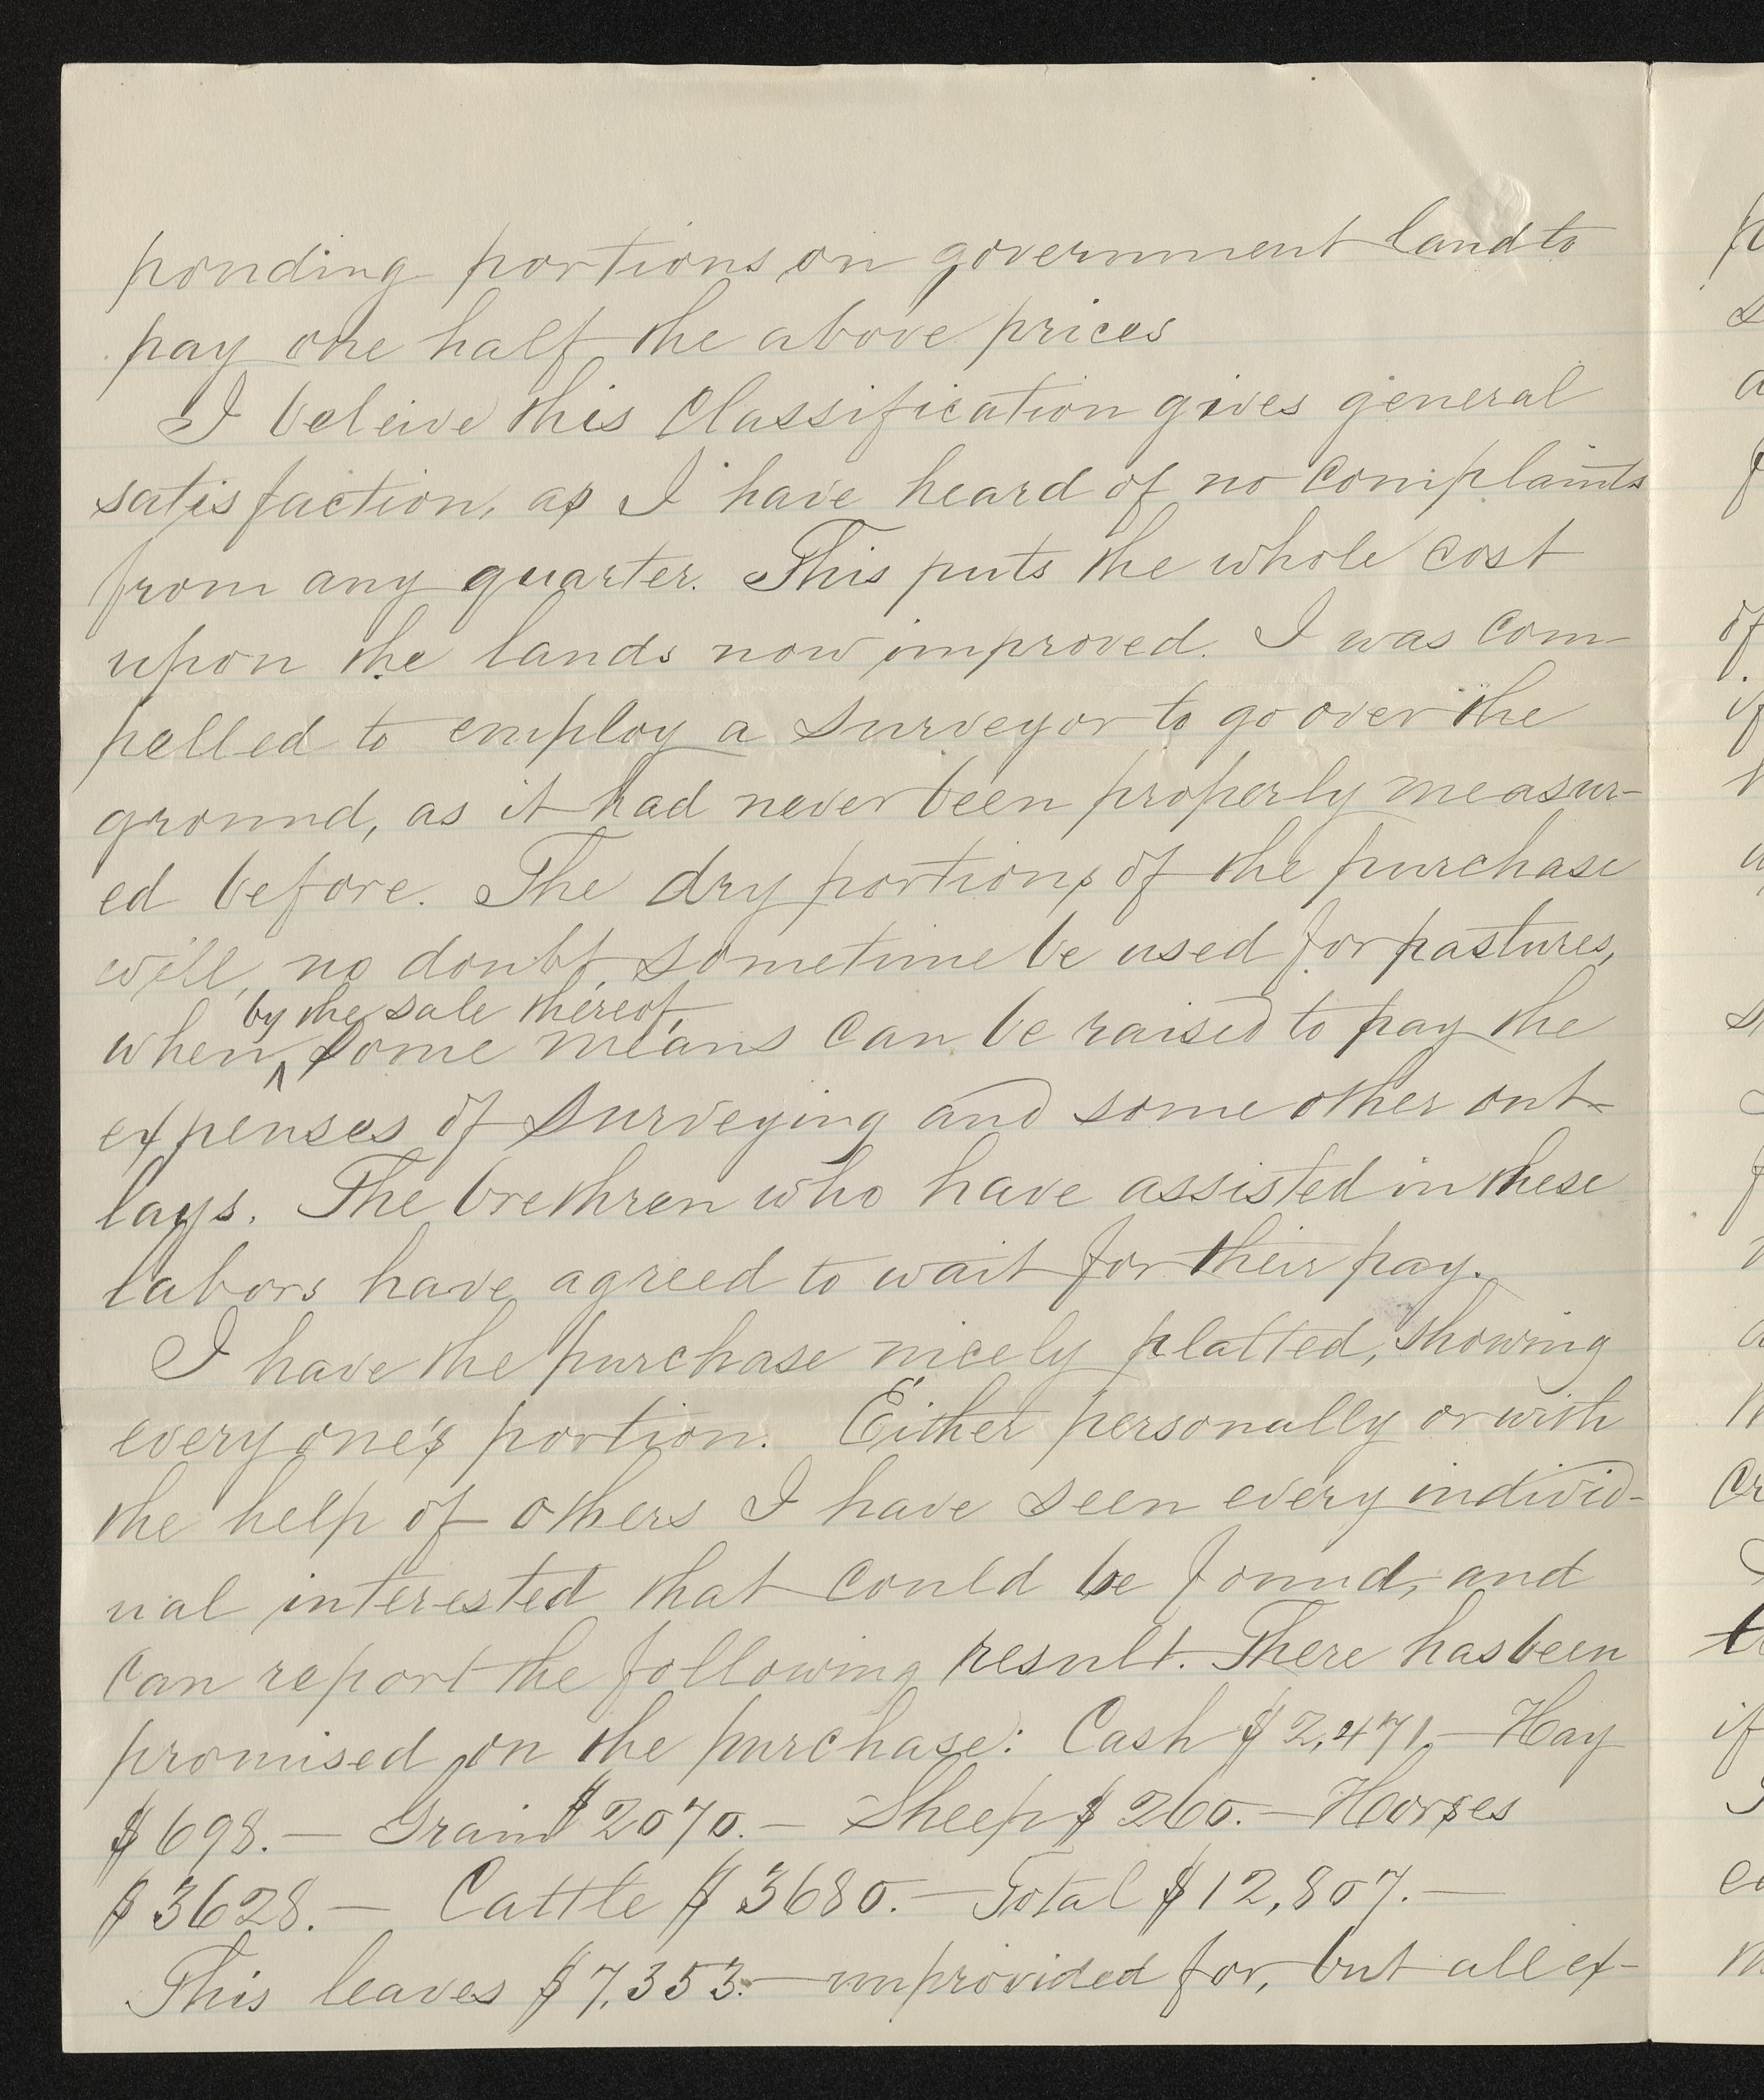 ponding portions on government land to
pay one half the above prices
I beleive this Classification gives general
satisfaction, as I have heard of no complaints
from any quarter. This puts the whole cost
upon the lands now improved. I was com-
pelled to employ a surveyor to go over the
ground, as it had never been properly measur-
ed before. The dry portions of the purchase
will, no doubt, sometime be used for pastures,
by the sale thereof,
when ^ some means can be raised to pay the
expenses of surveying and some other out-
lays. The brethren who have assisted in these
labors have agreed to wait for their pay.
I have the purchase nicely platted, showing
every one's portion. Either personally or with
the help of others I have seen every individ-
ual interested that could be found, and
can report the following result. There has been
promised on the purchase: Cash $2,471.— Hay
$698.— Grain $2070.— Sheep $260.— Horses
$3628.— Cattle $3680.— Total $12,807.—
This leaves $7,353.— unprovided for, but all ex-